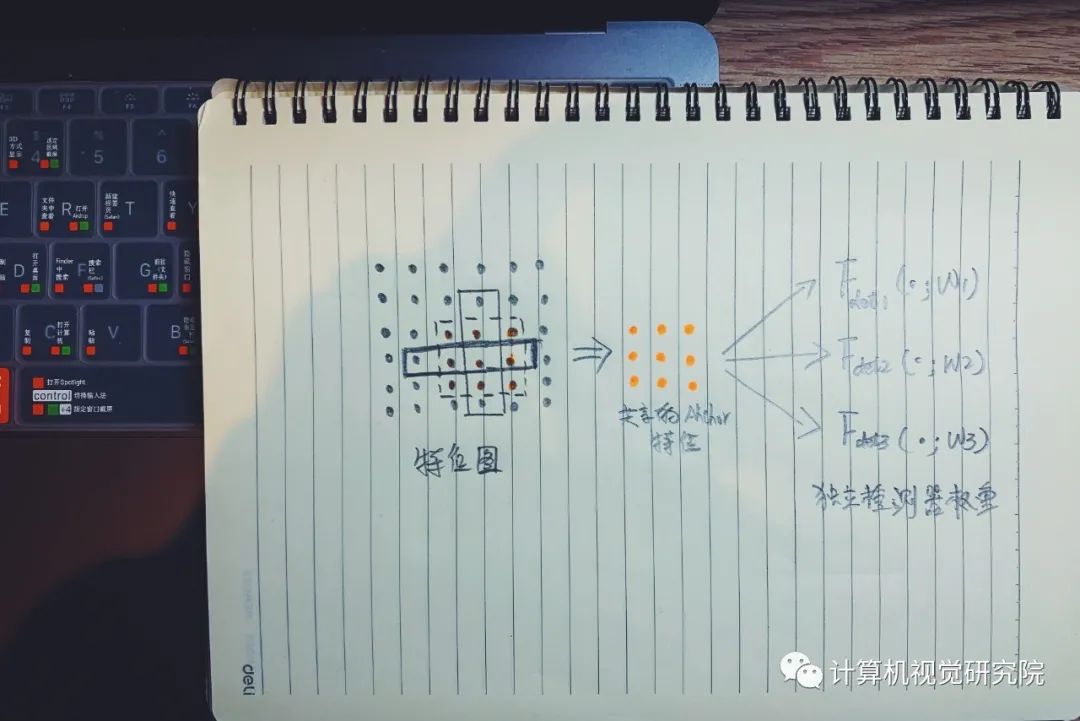 F3
F4
F5
F6
3D
方式
显示
$
4
%
5
^
6
E
文件
夹中
查看
R
打开
Airdrop
新建
标签
页
(Safari)
T
快
速
查
看
Y
D
打
开
桌
面
Finder
中
搜索
F
搜索
栏
(Safari)
G
前往
(文
件夹)
复
制
C
打开
计算
机
粘
贴
V
B
打开Spotlight
control 切换输入法
+4 指定窗口截屏
特征图
共享的Anchor
特征
Fdet1(·;W1)
Fdet2(·;W2)
Fdet3(·;W3)
独立检测器权重
deli
计算机视觉研究院